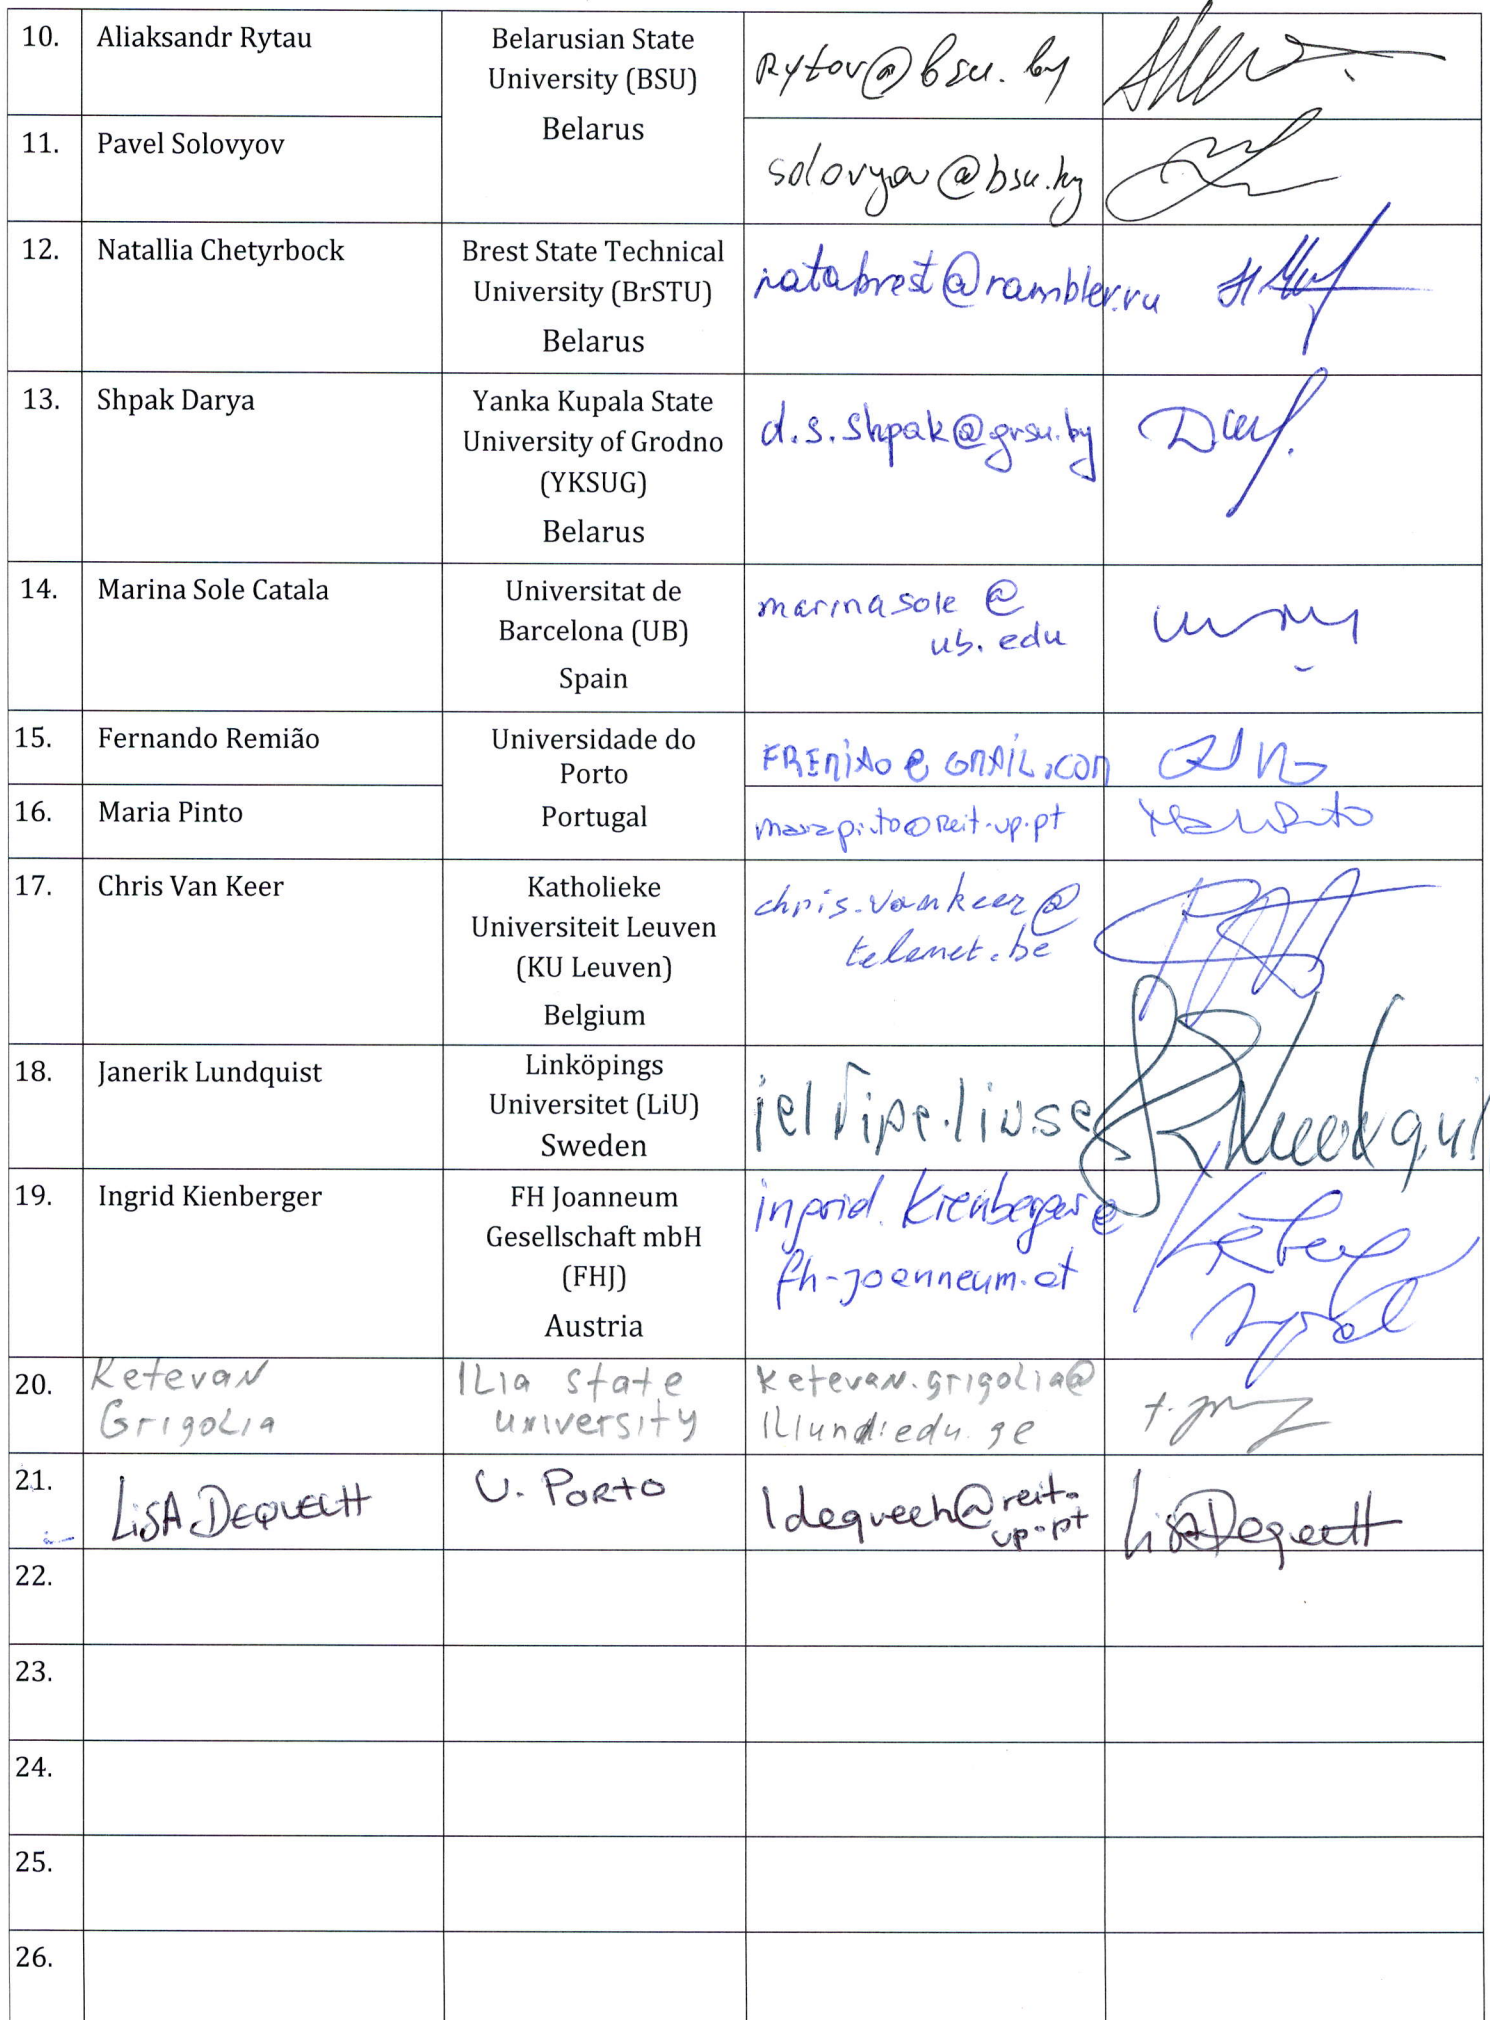 10.
Aliaksandr Rytau
Belarusian State
University (BSU)
Belarus
Rytov@bsu.by
11.
Pavel Solovyov
solovyov@bsu.by
12.
Natallia Chetyrbock
Brest State Technical
University (BrSTU)
Belarus
natabrest@rambler.ru
13.
Shpak Darya
Yanka Kupala State
University of Grodno
(YKSUG)
Belarus
d.s.shpak@grsu.by
14.
Marina Sole Catala
Universitat de
Barcelona (UB)
Spain
marinasole@
ub.edu
15.
Fernando Remião
Universidade do
Porto
Portugal
FREMIAO@GMAIL.COM
16.
Maria Pinto
mariapinto@reit.up.pt
17.
Chris Van Keer
Katholieke
Universiteit Leuven
(KU Leuven)
Belgium
chris.vankeer@
telenet.be
18.
Janerik Lundquist
Linköpings
Universitet (LiU)
Sweden
19.
Ingrid Kienberger
FH Joanneum
Gesellschaft mbH
(FHJ)
Austria
ingrid.kienberger@
fh-joanneum.at
20.
Ketevan
Grigolia
ILia state
university
Ketevan.grigolia@
21.
LiSA DEQUECH
U. PORTO
ldequech@reit.
up.pt
Lisa Dequech
22.
23.
24.
25.
26.